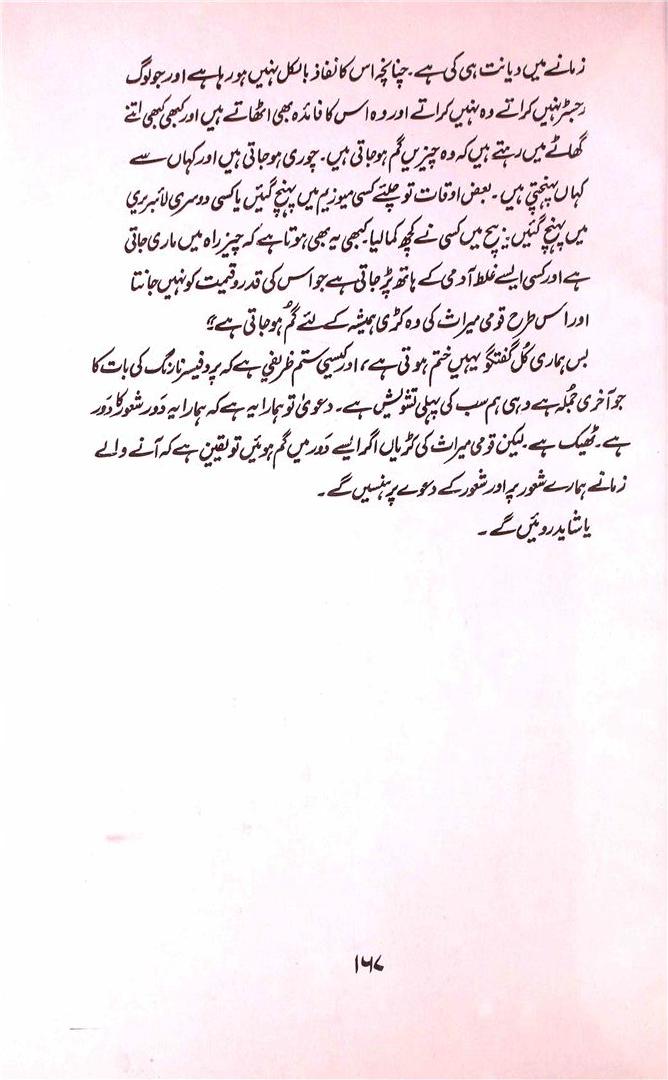 زمانے میں دیانت ہی کی ہے۔ چنانچہ اس کا نفاذ بالکل نہیں ہو رہا ہے اور جو لوگ
رجسٹر نہیں کراتے وہ نہیں کراتے اور وہ اس کا فائدہ بھی اٹھاتے ہیں اور کبھی کبھی اتنے
گھاٹے میں رہتے ہیں کہ وہ چیزیں گم ہو جاتی ہیں۔ چوری ہو جاتی ہیں اور کہاں سے
کہاں پہنچتی ہیں۔ بعض اوقات تو چلئے کسی میوزیم میں پہنچ گئیں یا کسی دوسری لائبریری
میں پہنچ گئیں۔ بیچ میں کسی نے کچھ کما لیا کبھی یہ بھی ہوتا ہے کہ چیز راہ میں ماری جاتی
ہے اور کسی ایسے غلط آدمی کے ہاتھ پڑ جاتی ہے جو اس کی قدر و قیمت کو نہیں جانتا
اور اس طرح قومی میراث کی وہ کڑی ہمیشہ کے لئے گُم ہو جاتی ہے"
بس ہماری کُل گفتگو یہیں ختم ہوتی ہے، اور کیسی ستم ظریفی ہے کہ پروفیسر نارنگ کی بات کا
جو آخری جُملہ ہے وہی ہم سب کی پہلی تشویش ہے۔ دعویٰ تو ہمارا یہ ہے کہ ہمارا یہ دَور شعور کا دَور
ہے۔ ٹھیک ہے۔ لیکن قومی میراث کی کڑیاں اگر ایسے دَور میں گم ہوئیں تو یقین ہے کہ آنے والے
زمانے ہمارے شعور پر اور شعور کے دعوے پر ہنسیں گے۔
یا شاید روئیں گے۔
۱۶۷